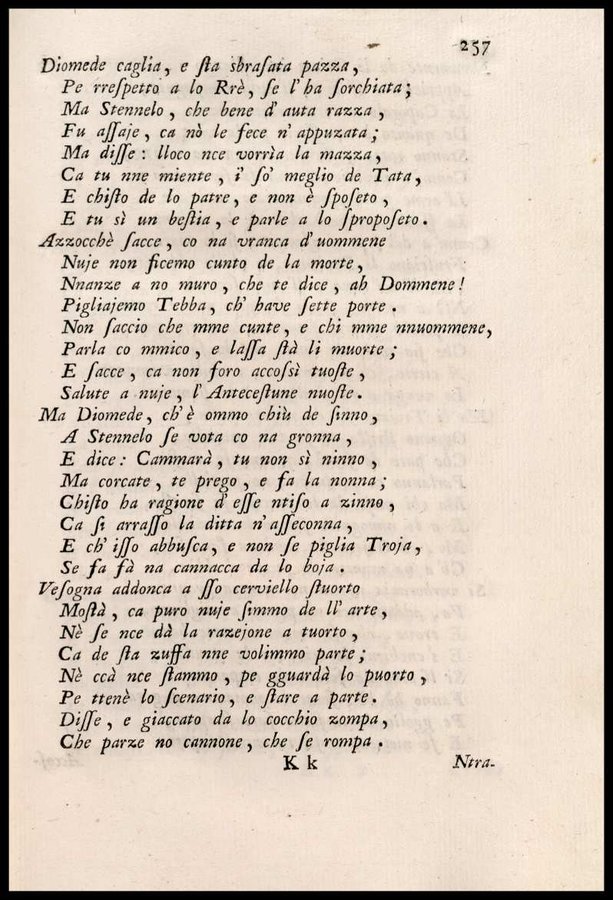 257
Diomede caglia, e ſta sbraſata pazza,
Pe rreſpetto a lo Rrè, ſe l' ha ſorchiata;
Ma Stennelo, che bene d' auta razza,
Fu aſſaje, ca nò le fece n' appuzata;
Ma diſſe: lloco nce vorrìa la mazza,
Ca tu nne miente, i' ſo' meglio de Tata,
E chiſto de lo patre, e non è ſpoſeto,
E tu sì un beſtia, e parle a lo ſpropoſeto.
Azzocchè ſacce, co na vranca d' uommene
Nuje non ficemo cunto de la morte,
Nnanze a no muro, che te dice, ah Dommene!
Pigliajemo Tebba, ch' have ſette porte.
Non ſaccio che mme cunte, e chi mme nnuommene,
Parla co mmico, e laſſa ſtà li muorte;
E ſacce, ca non foro accoſsì tuoſte,
Salute a nuje, l' Anteceſtune nuoſte.
Ma Diomede, ch' è ommo chiù de ſinno,
A Stennelo ſe vota co na gronna,
E dice: Cammarà, tu non sì ninno,
Ma corcate, te prego, e fa la nonna;
Chiſto ha ragione d' eſſe ntiſo a zinno,
Ca ſi arraſſo la ditta n' aſſeconna,
E ch' iſſo abbuſca, e non ſe piglia Troja,
Se fa fà na cannacca da lo boja.
Veſogna addonca a ſſo cerviello ſtuorto
Moſtà, ca puro nuje ſimmo de ll' arte,
Nè ſe nce dà la razejone a tuorto,
Ca de ſta zuffa nne volimmo parte;
Nè ccà nce ſtammo, pe gguardà lo puorto,
Pe ttenè lo ſcenario, e ſtare a parte.
Diſſe, e giaccato da lo cocchio zompa,
Che parze no cannone, che ſe rompa.
K k
Ntra-